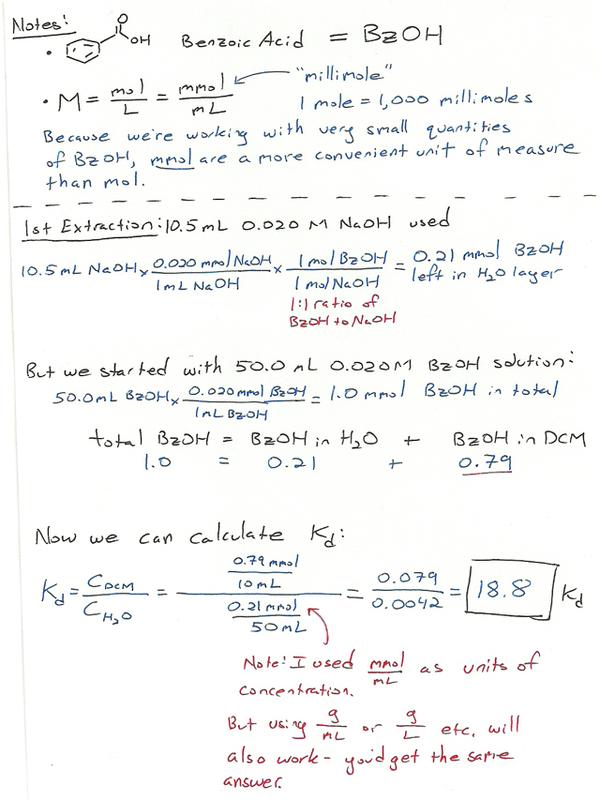 Notes:
• O OH Benzoic Acid = BzOH
• M = mol/L = mmol/mL "millimole"
1 mole = 1,000 millimoles
Because we're working with very small quantities
of BzOH, mmol are a more convenient unit of measure
than mol.
1st Extraction: 10.5 mL 0.020 M NaOH used
10.5 mL NaOH x 0.020 mmol NaOH/1 mL NaOH x 1 mol BzOH/1 mol NaOH = 0.21 mmol BzOH left in H2O layer
1:1 ratio of
BzOH to NaOH
But we started with 50.0 mL 0.020 M BzOH solution:
50.0 mL BzOH x 0.020 mmol BzOH/1 mL BzOH = 1.0 mmol BzOH in total
total BzOH = BzOH in H2O + BzOH in DCM
1.0 = 0.21 + 0.79
Now we can calculate Kd:
Kd = C DCM/C H2O = (0.79 mmol/10 mL)/(0.21 mmol/50 mL) = 0.079/0.0042 = 18.8 Kd
Note: I used mmol/mL as units of
concentration.
But using g/mL or g/L etc. will
also work - you'd get the same
answer.